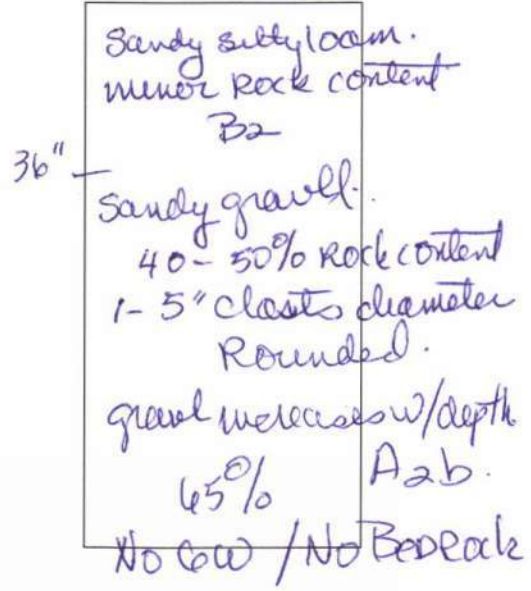 Sandy silty loam.
minor Rock content
B2
36"
Sandy gravel.
40-50% Rock content
1-5" clasts diameter
Rounded.
gravel increases w/depth
65% A2b.
No GW / No BEDRock